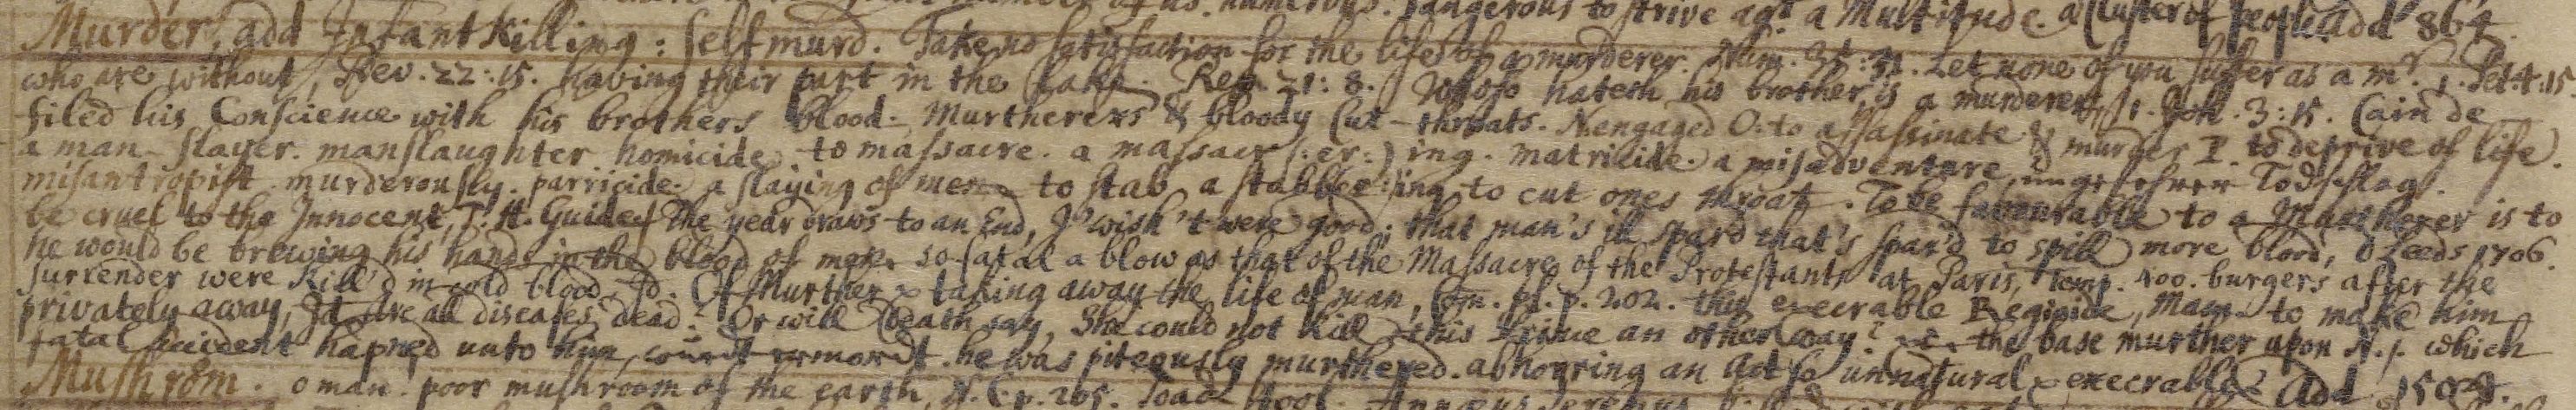 of us. numerous. dangerous to strive agt a Multitude. a Cluster of people add 864.
Murder, add Infant Killing: self murd. Take no satisfaction for the life of a murderer. Num. 35:31. Let none of you suffer as a mr. 1. Pet. 4:15.
who are without, Rev. 22:15. having their part in the Lake. Rev. 21:8. Whoso hateth his brother, is a murderer, 1. Joh. 3:15. Cain de
filed his Conscience with his brothers blood. Murtherers & bloody Cut-throats. N. engaged O. to assassinate & murder P. to deprive of life.
a man-slayer. manslaughter homicide. to massacre. a massacr (:er:) ing. matricide. a misadventure, ungefehrer Todschlag.
misantropist. murderously. parricide. a slaying of men. to stab a stabber:ing, to cut ones throat. To be favourable to a Murtherer is to
be cruel to the Innocent, T. H. Guide. The year draws to an End, I wish't were good; that man's ill spar'd that's spar'd to spill more blood, d Leeds 1706.
he would be brewing his hands in the blood of men. so fatal a blow as that of the Massacre of the Protestants at Paris, Temp. 400. burgers after the
surrender were kill'd in cold blood, Id. Of Murther & taking away the life of man, p. 202. this execrable Regicide, Mam. to make him
privately away, Id. Are all diseases dead? Or will Death say, She could not kill this Prince an other way? the base murther upon N. J. which
fatal accident hapned unto him, he was piteously murthered. abhorring an act so unnatural & execrable. Add 1504.
Mushrom. o man. poor mushroom of the earth, N. C. p. 205. Toad stool.